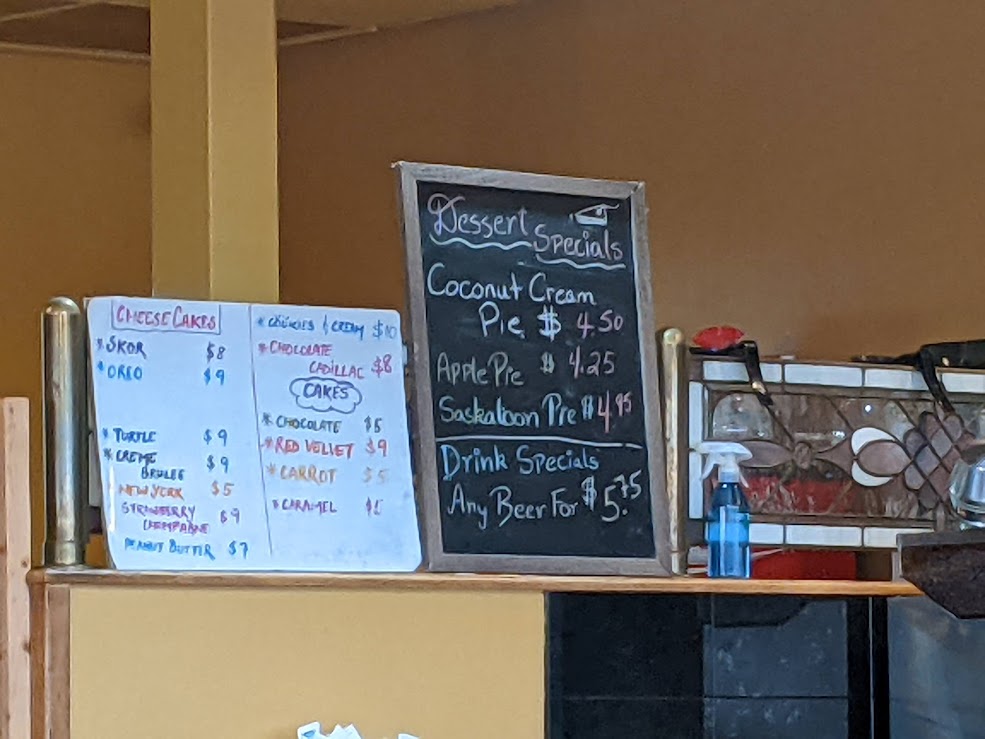 CHEESECAKES
* SKOR $8
* OREO $9
* TURTLE $9
* CREME
BRULEE $9
NEW YORK $5
STRAWBERRY
CHEMPAGNE $9
PEANUT BUTTER $7
* COOKIES & CREAM $10
* CHOCOLATE
CADILLAC $8
CAKES
* CHOCOLATE $5
* RED VELVET $9
* CARROT $5
* CARAMEL
Dessert
Specials
Coconut Cream
Pie $ 4.50
Apple Pie $ 4.25
Saskatoon Pie $ 4.95
Drink Specials
Any Beer For $5.75